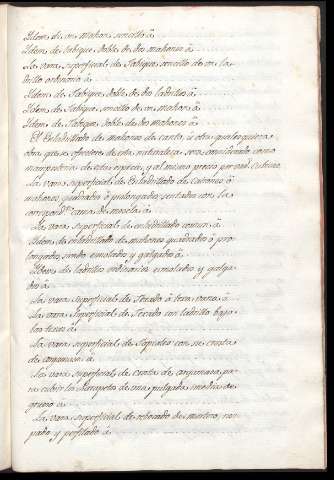 Idem de un Mahon sencillo á
Idem de tabique doble de dos mahones á
La vara superficial de Tabique sencillo de un la
drillo ordinario á
Idem de Tabique doble de dos ladrillos á
Idem de Tabique sencillo de un Mahon á
Idem de Tabique doble de dos Mahones á
El Enladrillado de mahones de canto, ú otra qualesquiera
obra que se ofreciere de esta naturaleza, sera considerado como
mamposteria de esta especie, y al mismo precio por vara Cubica.
La vara superficial de Enladrillado de
mahones quadrados ó prolongados sentados con la
correspond.te cama de mescla á
La vara superficial de enladrillado comun á
Idem de enladrillado de mahones quadrados ó pro
longados siendo amolados y galgados á
Idem de ladrillo ordinarios amolados y galga
dos á
La vara superficial de Texado á teja vana á
La vara superficial de Texado con ladrillo bajo
las texas á
La vara superficial de Tapiales con su costra
de argamasa á
La vara superficial de costra de argamasa pa
ra cubrir los de una pulgada media de
grueso á
La vara superficial de rebocado de mortero, ras
pado y perfilado á